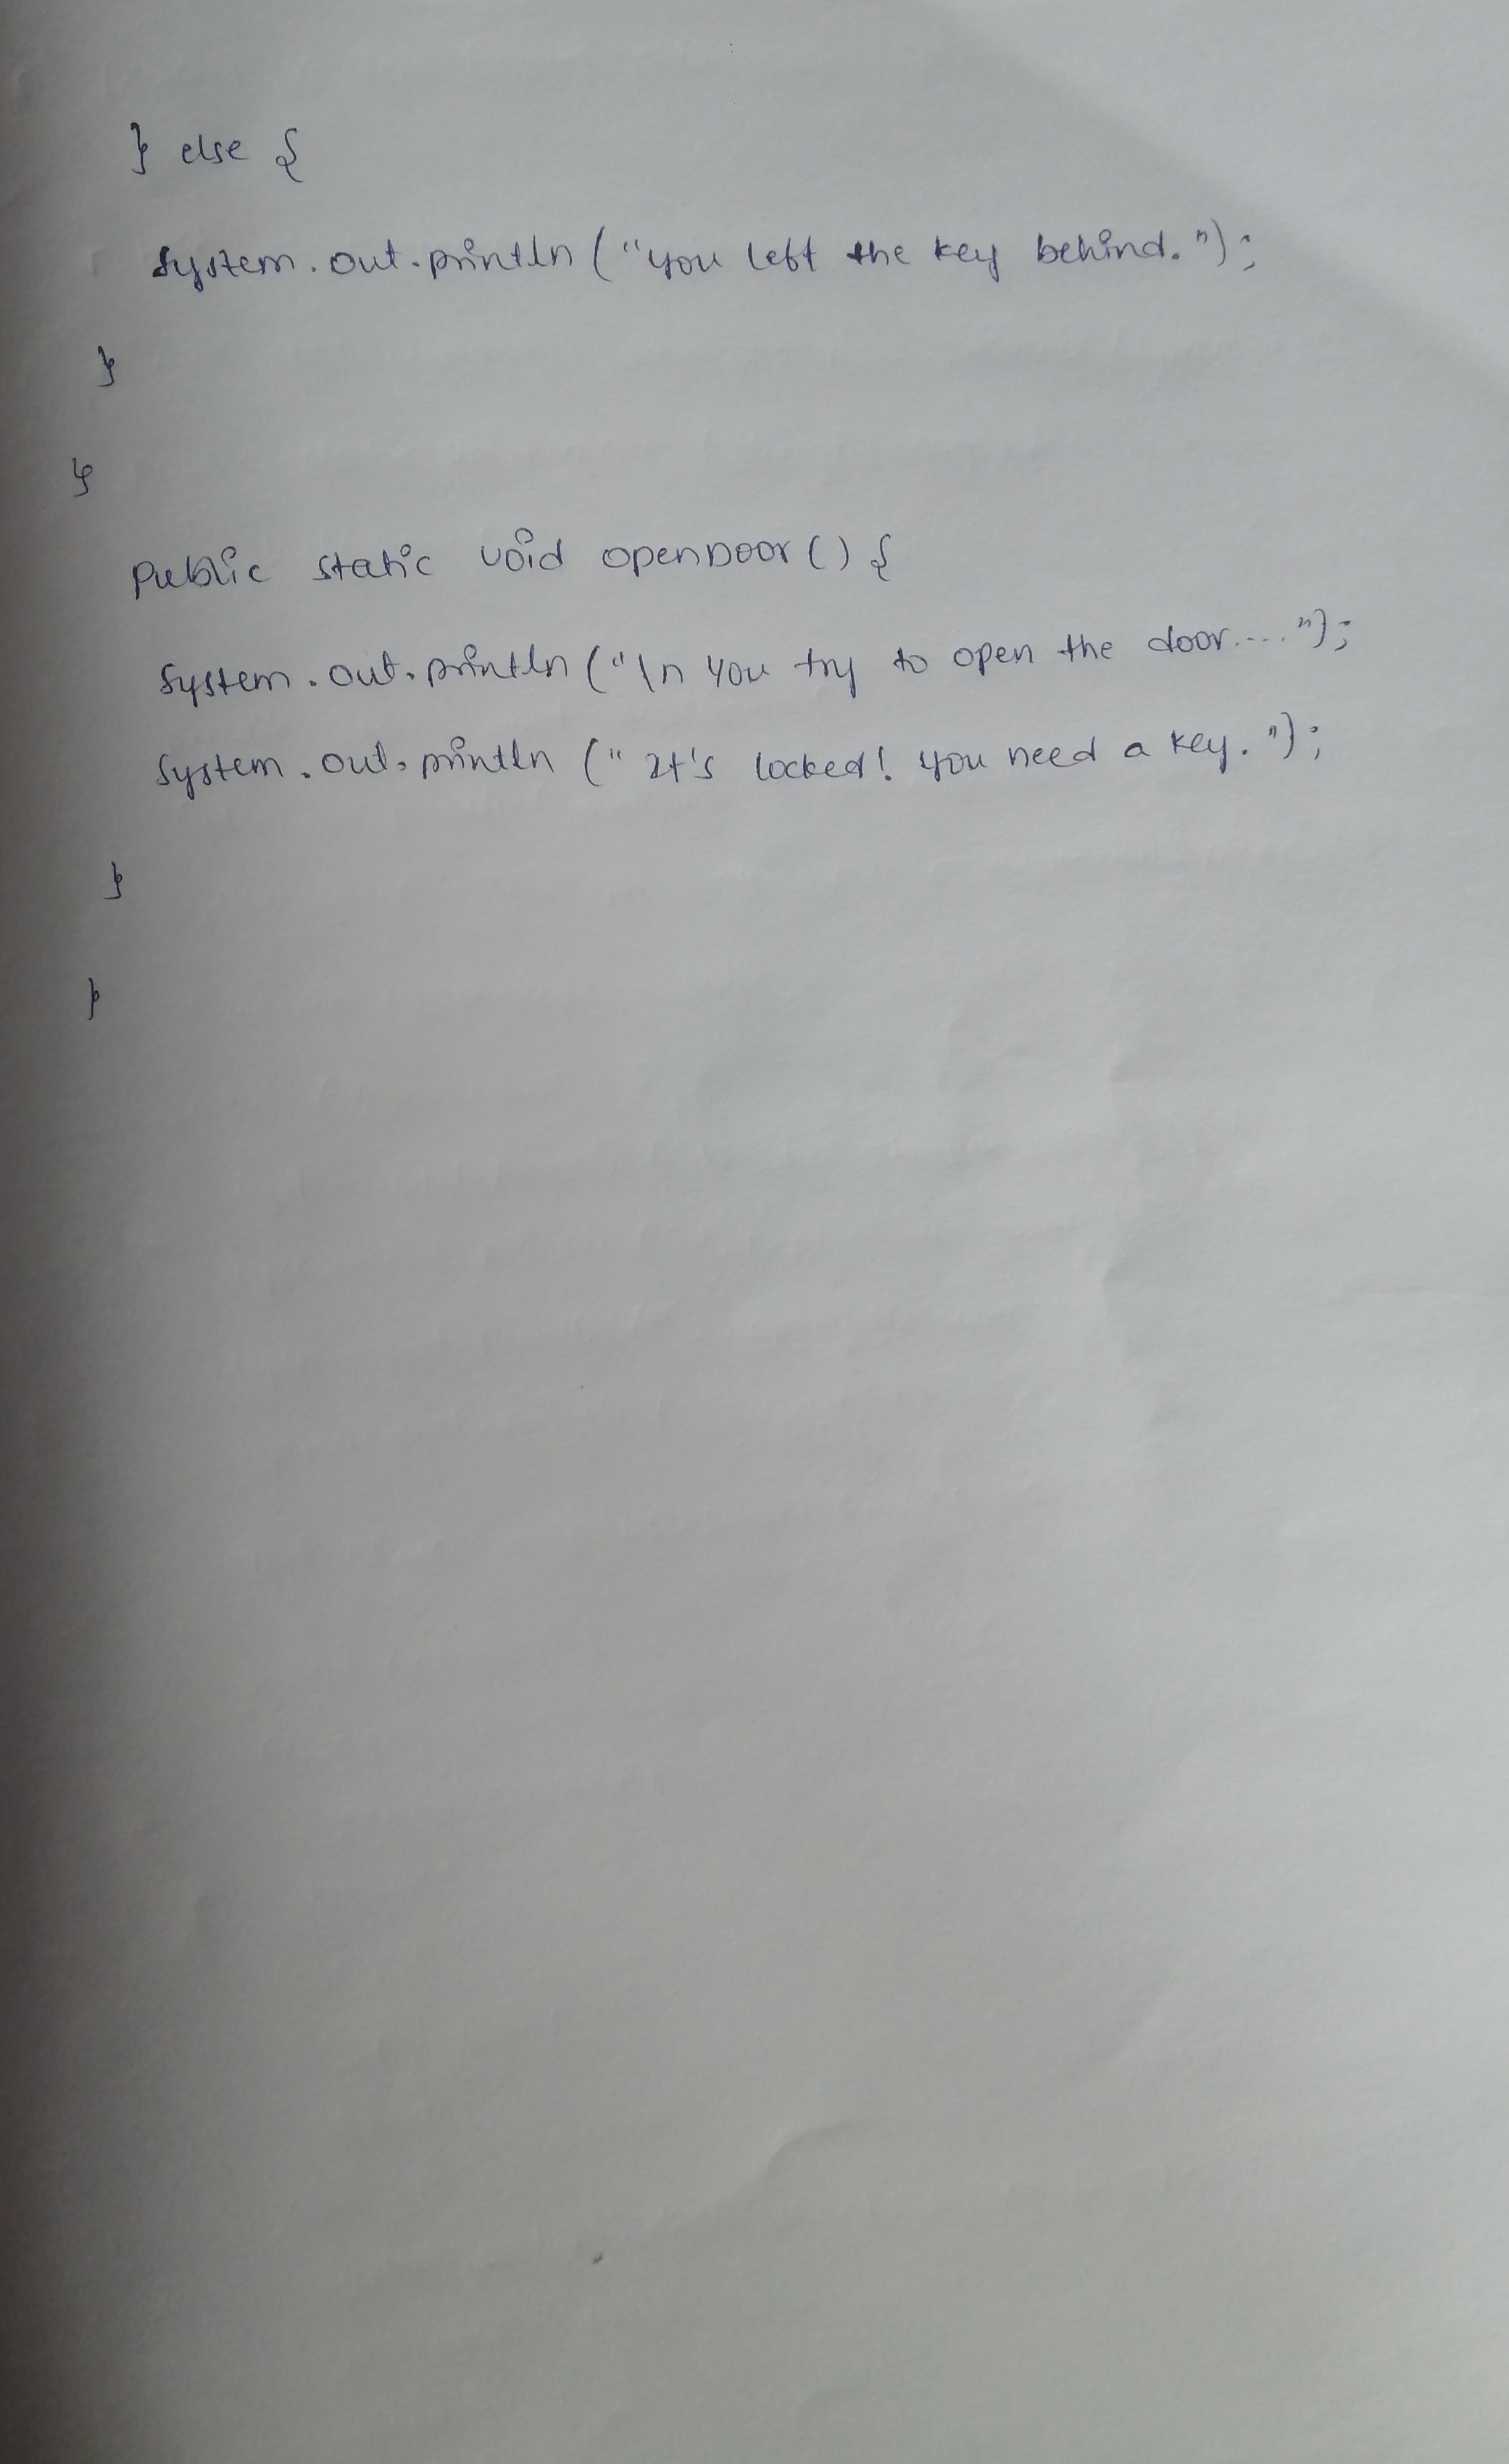 } else {
System.out.println ("you left the key behind.");
}
}
public static void openDoor () {
System.out.println ("\n You try to open the door....");
System.out.println (" It's locked! you need a key.");
}
}